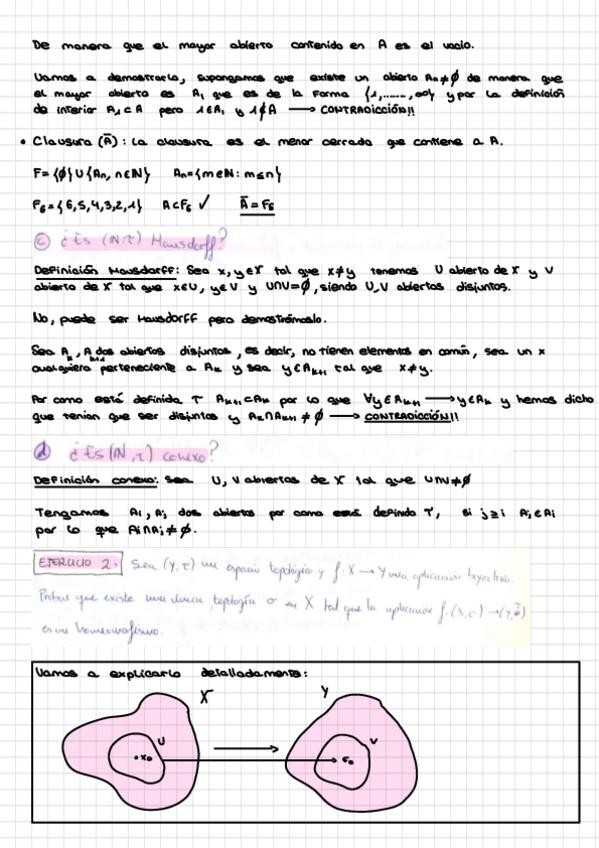 De manera que el mayor abierto contenido en A es el vacio.
Vamos a demostrarlo, supongamos que existe un abierto An≠∅ de manera que
el mayor abierto es A₁ que es de la forma {1,......,∞} y por la definición
de interior A₁⊂A pero 1∈A₁ y 1∉A ⟶ CONTRADICCIÓN!!
• Clausura (Ā): La clausura es el menor cerrado que contiene a A.
F={∅}∪{An, n∈N} An={m∈N: m≤n}
F₆={6,5,4,3,2,1} A⊂F₆ ✓ Ā=F₆
c) ¿Es (N,τ) Hausdorff?
Definición Hausdorff: Sea x,y∈X tal que x≠y tenemos U abierto de X y V
abierto de X tal que x∈U, y∈V y U∩V=∅, siendo U,V abiertos disjuntos.
No, puede ser Hausdorff pero demostrémoslo.
Sea Aₖ, Aₖ₊₁ dos abiertos disjuntos, es decir, no tienen elementos en común, sea un x
cualquiera perteneciente a Aₖ y sea y∈Aₖ₊₁ tal que x≠y.
Por como está definida τ Aₖ₊₁⊂Aₖ por lo que ∀y∈Aₖ₊₁ ⟶ y∈Aₖ y hemos dicho
que tenian que ser disjuntos y Aₖ∩Aₖ₊₁ ≠ ∅ ⟶ CONTRADICCIÓN!!
d) ¿Es (N,τ) conexo?
Definición conexo: Sea U, V abiertos de X tal que U∩V≠∅
Tengamos Ai, Aj dos abiertos por como está definido τ, si j≥i Aj∈Ai
por lo que Ai∩Aj≠∅.
EJERCICIO 2. Sea (Y,τ) un espacio topológico y f: X → Y una aplicación biyectiva.
Probar que existe una única topología σ en X tal que la aplicación f: (X,σ)→(Y,τ)
es un homeomorfismo.
Vamos a explicarlo detalladamente:
X Y
U V
x₀